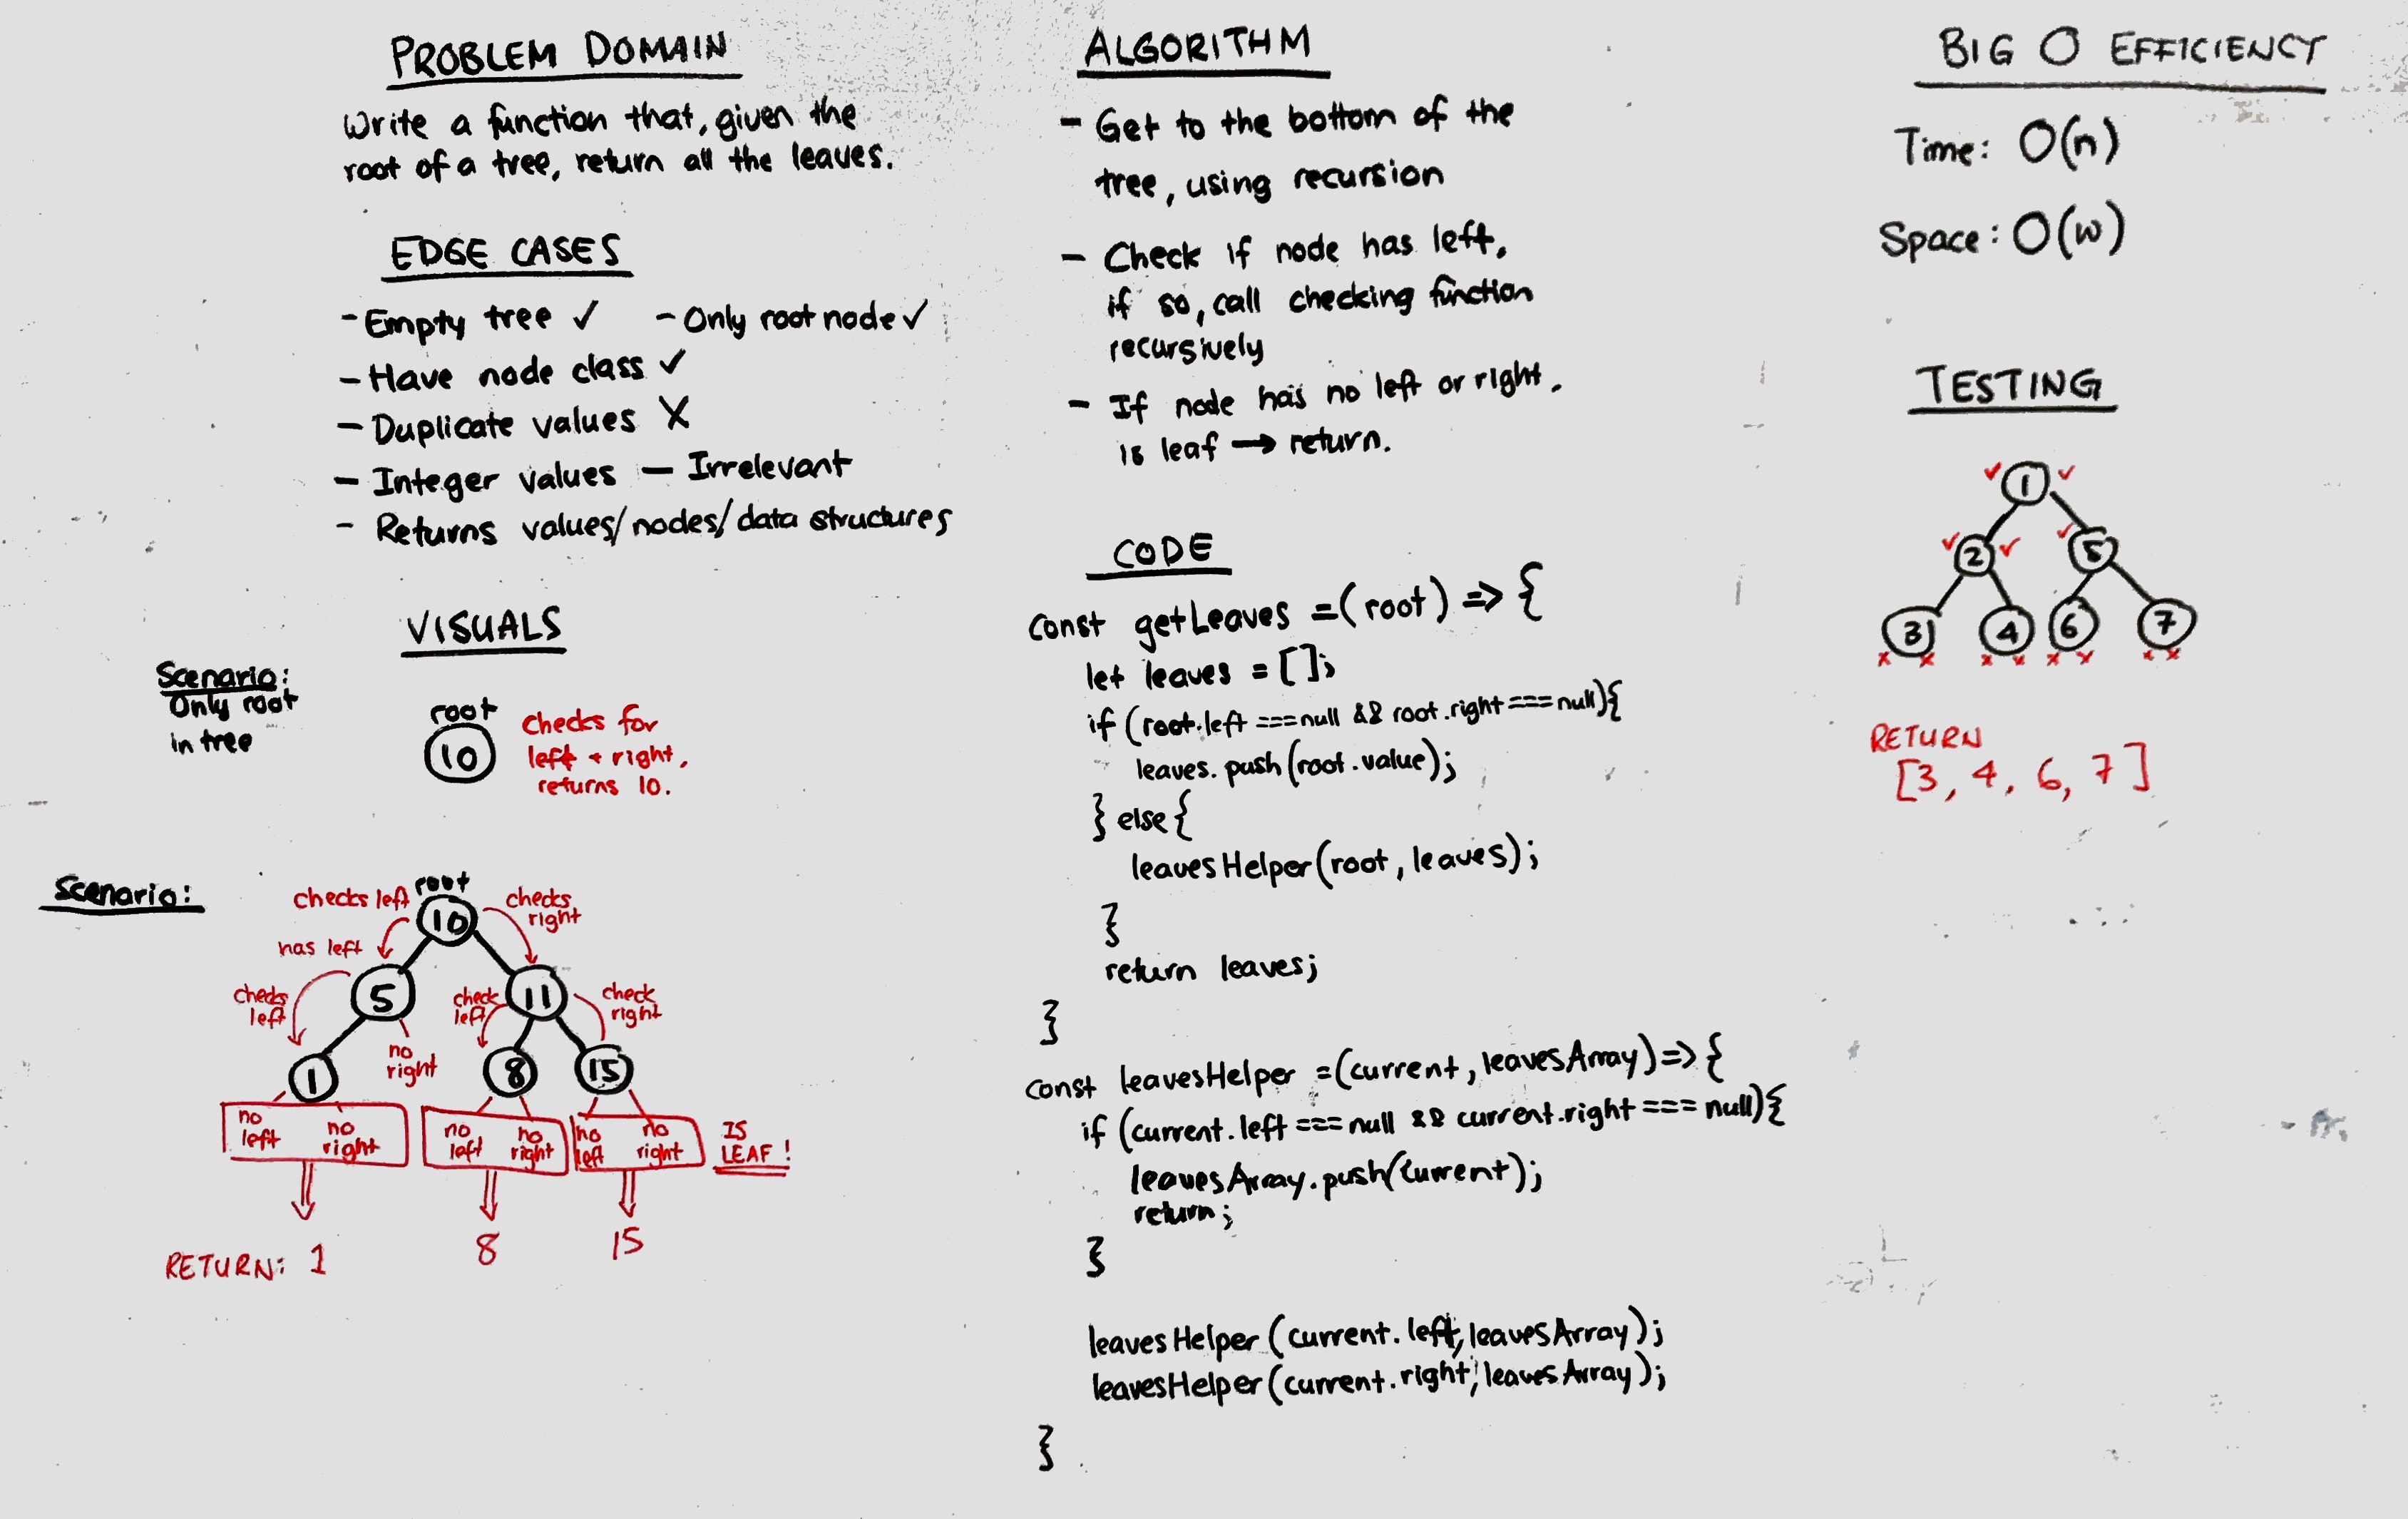 PROBLEM DOMAIN
Write a function that, given the
root of a tree, return all the leaves.
EDGE CASES
- Empty tree ✓ - Only root node ✓
- Have node class ✓
- Duplicate values X
- Integer values - Irrelevant
- Returns values/nodes/data structures
VISUALS
Scenario:
Only root
in tree
root
10
checks for
left + right,
returns 10.
Scenario:
root
checks left
10
checks
right
has left
5
11
checks
left
check
left
check
right
no
right
1
8
15
no
left
no
right
no
left
no
right
no
left
no
right
IS
LEAF!
RETURN: 1
8
15
ALGORITHM
- Get to the bottom of the
tree, using recursion
- Check if node has left,
if so, call checking function
recursively
- If node has no left or right,
is leaf → return.
CODE
const getLeaves = (root) => {
let leaves = [];
if (root.left === null && root.right === null){
leaves.push(root.value);
} else {
leavesHelper(root, leaves);
}
return leaves;
}
const leavesHelper = (current, leavesArray) => {
if (current.left === null && current.right === null){
leavesArray.push(current);
return;
}
leavesHelper(current.left, leavesArray);
leavesHelper(current.right, leavesArray);
}
BIG O EFFICIENCY
Time: O(n)
Space: O(w)
TESTING
✓ 1 ✓
✓ 2 ✓
✓ 5
3
4
6
7
x x x x x x x x
RETURN
[3, 4, 6, 7]